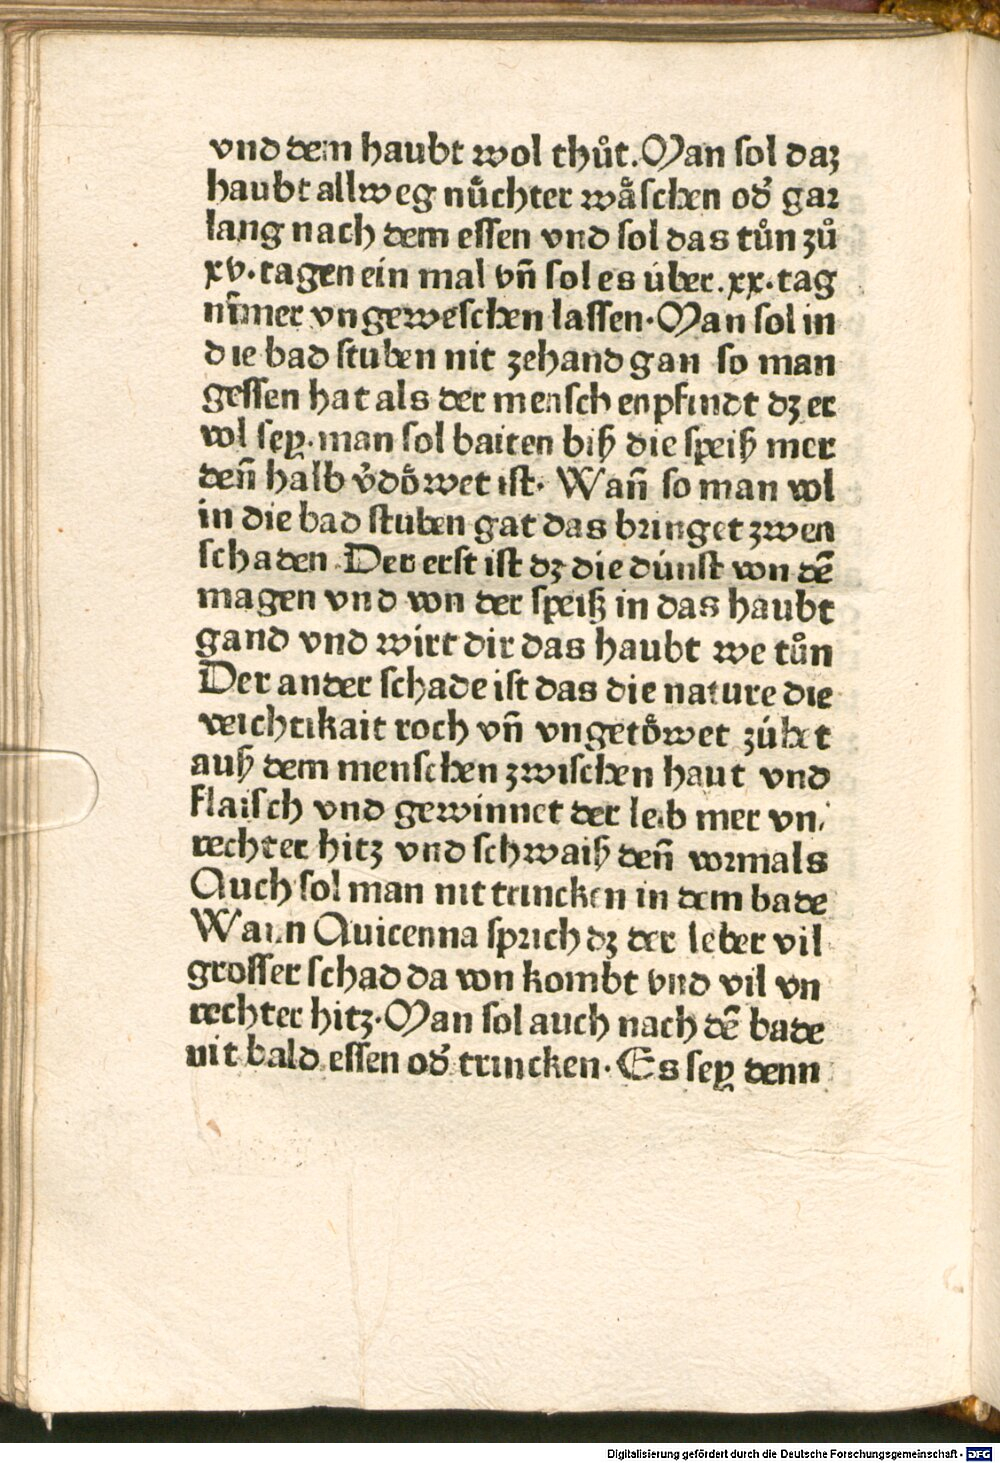 vnd dem haubt wol thůt. Man sol daz
haubt allweg nüchter wäschen od̛ gar
lang nach dem essen vnd sol das tůn zů
xv. tagen ein mal vn̄ sol es über .xx. tag
nim̄er vngeweschen lassen. Man sol in
die bad stuben nit zehand gan so man
gessen hat als der mensch enpfindt dz er
vol sey. man sol baiten biß die speiß mer
den̄ halb v̛döwet ist. Wan̄ so man vol
in die bad stuben gat das bringet zwen
schaden. Der erst ist dz die dünst von dē
magen vnd von der speiß in das haubt
gand vnd wirt dir das haubt we tůn
Der ander schade ist das die nature die
veichtikait roch vn̄ vngetöwet zühet
auß dem menschen zwischen haut vnd
flaisch vnd gewinnet der leib mer vn/
rechter hitz vnd schwaiß den̄ vormals
Auch sol man nit trincken in dem bade
Wann Auicenna sprich dz der leber vil
grosser schad da von kombt vnd vil vn
rechter hitz. Man sol auch nach dē bade
nit bald essen od̛ trincken. Es sey denn
Digitalisierung gefördert durch die Deutsche Forschungsgemeinschaft - DFG